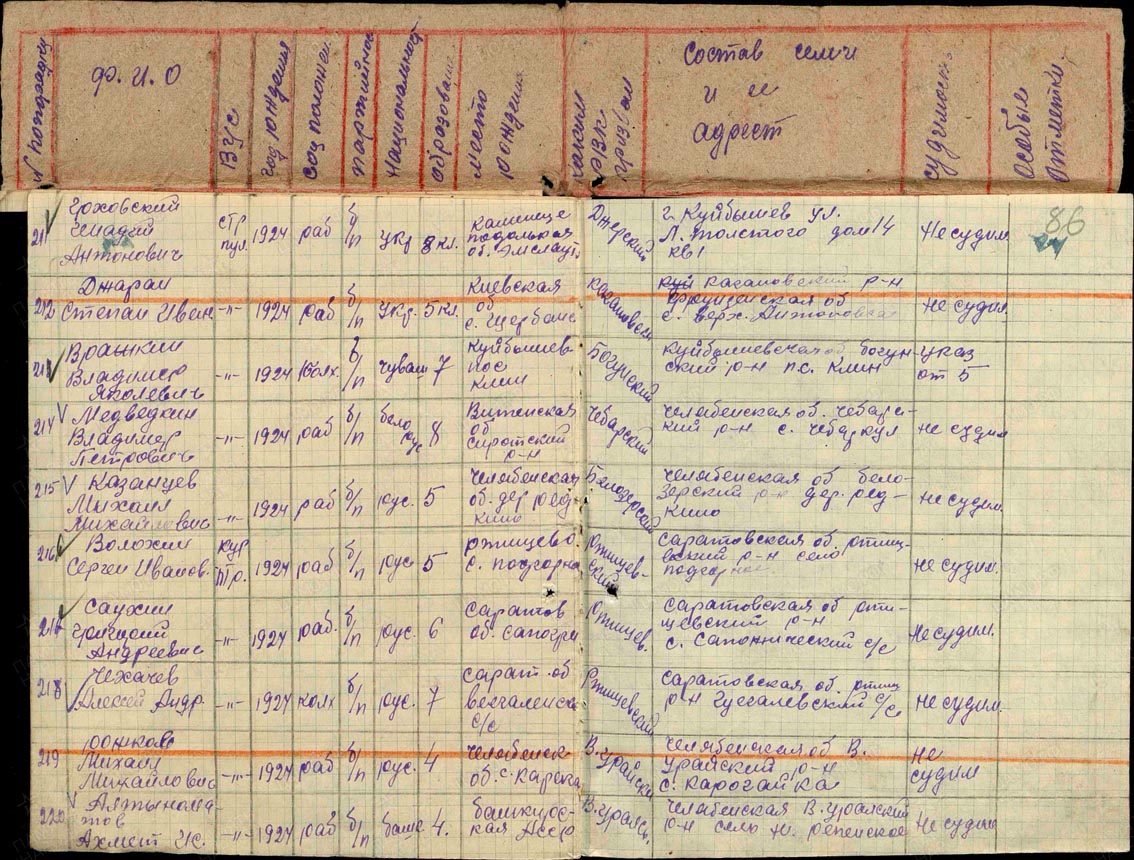 N попорядку
Ф. И. О
ВУС
год рождения
соц положен.
партийнос
национальност
образован
место рождения
каким РВК призван
Состав семи и ее адрест
судимость
Особые отметки
86
211 Гоховский
Антонович
стр пул. 1924 раб б/п укр 8 кл.
Джерский
г. Куйбышев ул. Л. Толстого дом 14 кв 1
Не судим
212 Джаран
Степан Иван -"- 1924 раб б/п укр. 5 кл.
Киевская об с. Щербан
кагановски
Кагановский р-н
об с. верх. Антоновка
не судим.
213 Врашкин
Владимер
Яколевич -"- 1924 колх. б/п чуваш 7
Куйбышев пос клин
Богунский
Куйбышевская об богунский р-н п.с. Клин
указ от 5
214 Медведкин
Владимер
Петрович -"- 1924 раб б/п бело рус 8
Витепская об сиротский р-н
Чебарский
Челябенская об. чебарский р-н с. чебаркул
не судим
215 Казанцев
Михаил
Михайлович -"- 1924 раб б/п рус. 5
Челябенская об. дер редкино
Белозерский
Челябенская об белозерский р-н дер. редкино
не судим.
216 Волохин
Сергеи Иванов. кур тр. 1924 раб б/п рус 5
ртищево. с. подгорна
Ртищевский
Саратовская об. ртищевский р-н село подгорное
не судим.
217 Саухин
Григорий
Андреевич -"- 1924 раб. б/п рус. 6
Саратов об. сапогри
Ртищев.
Саратовская об ртищевский р-н
с. Сапожнический с/с
Не судим.
218 Чехачев
Алексей Андр. -"- 1924 колх б/п рус. 7
сарат. об с/с
Ртищевский
Саратовская об. ртищ р-н с/с
Не судим.
219 Юожков
Михаил
Михайлович -"- 1924 раб б/п рус. 4
Челябенск об. с. Карага
В. Урайски
Челябенская об В. Урайский р-н
с. Карогайка
не судим
220 Алтынома-
тов
Ахмет Ис. -"- 1924 раб б/п баше 4.
башкирская Асср
В. Уральс.
Челябенская В. уралский р-н село Н. репенское
Не судим